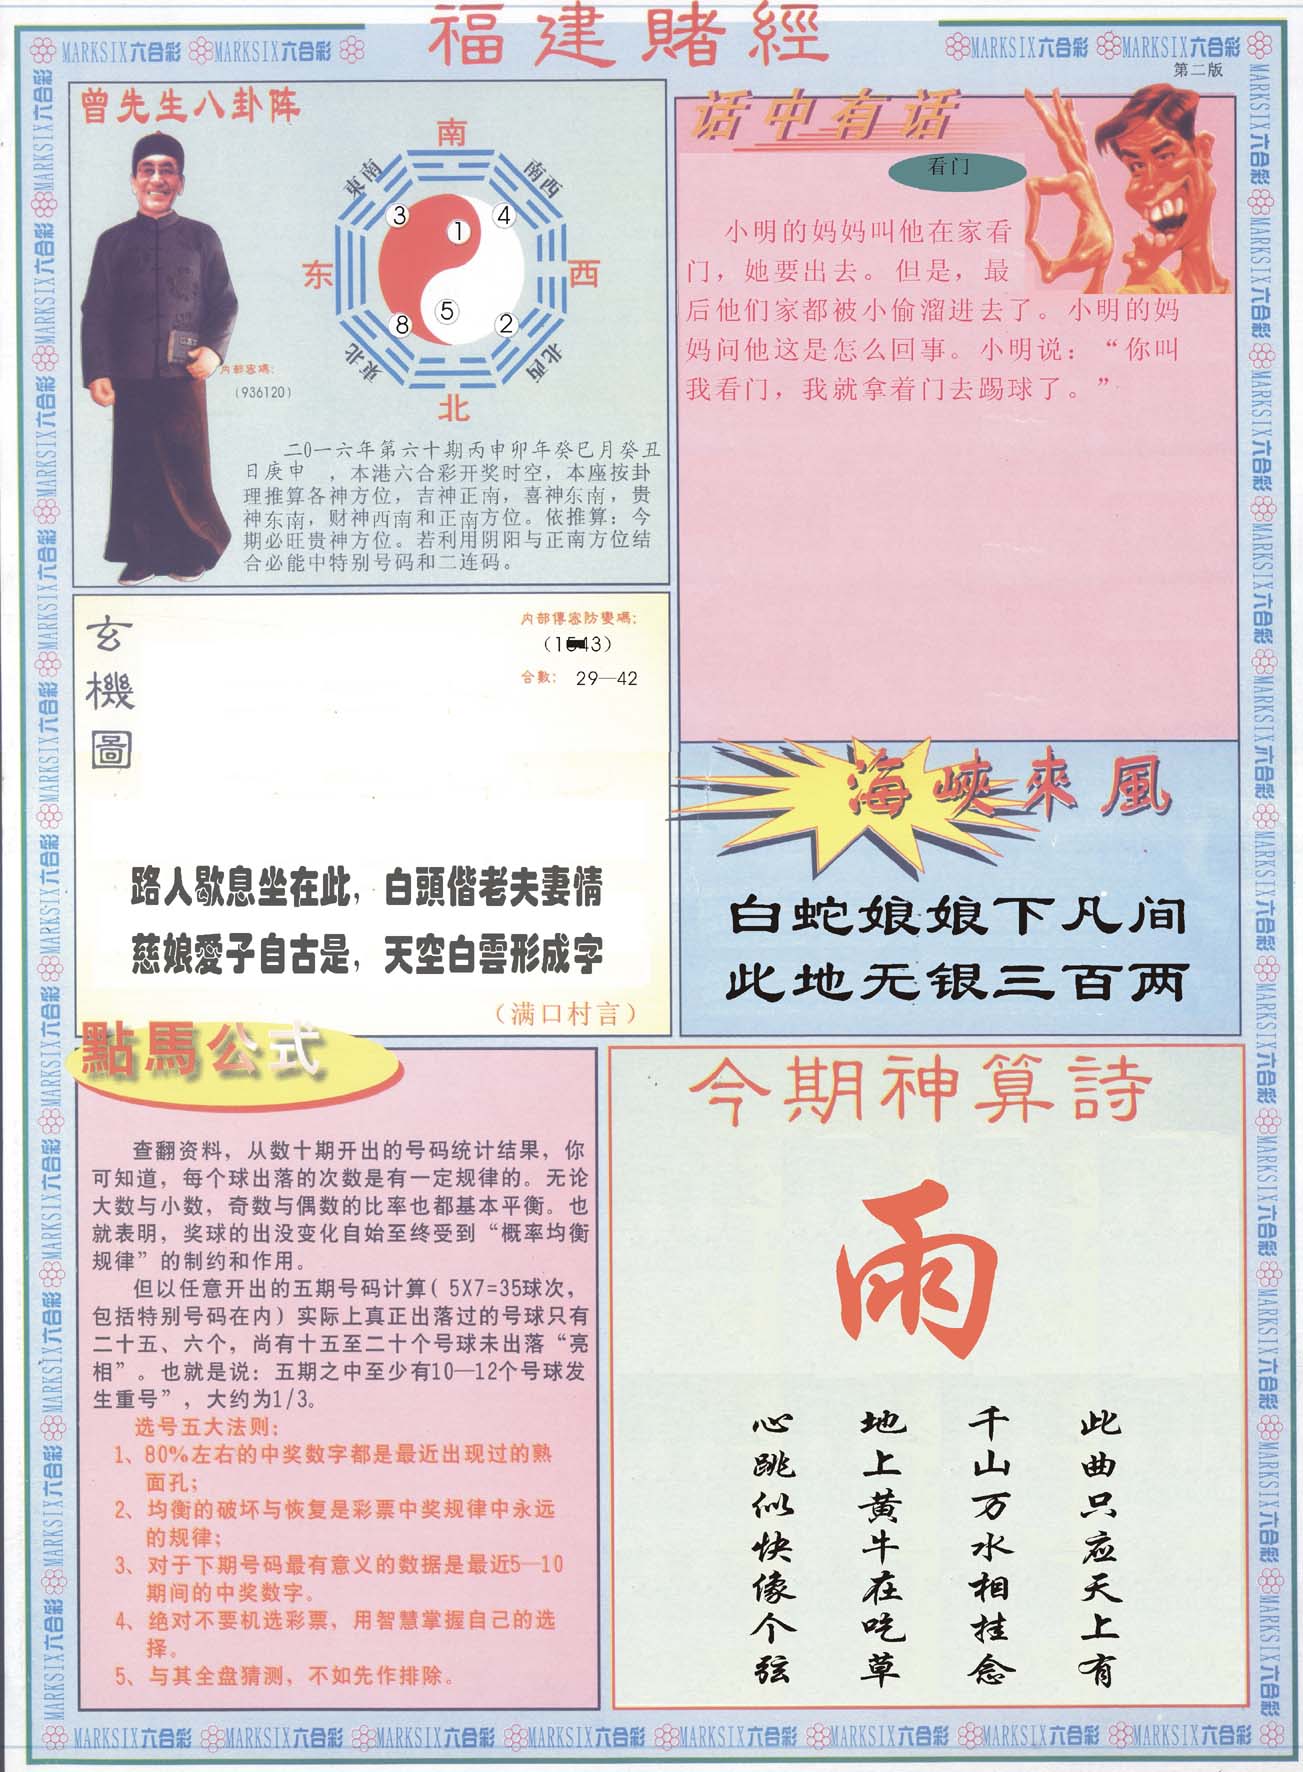 福建賭經
MARKSIX六合彩 MARKSIX六合彩
MARKSIX六合彩 MARKSIX六合彩
第二版
曾先生八卦阵
南
東南
南西
3
1
4
东
西
5
8
2
東北
北西
北
内部密碼:
(936120)
二0一六年第六十期丙申卯年癸巳月癸丑
日庚申 ,本港六合彩开奖时空,本座按卦
理推算各神方位,吉神正南,喜神东南,贵
神东南,财神西南和正南方位。依推算:今
期必旺贵神方位。若利用阴阳与正南方位结
合必能中特别号码和二连码。
话中有话
看门
小明的妈妈叫他在家看
门,她要出去。但是,最
后他们家都被小偷溜进去了。小明的妈
妈问他这是怎么回事。小明说:“你叫
我看门,我就拿着门去踢球了。”
玄機圖
内部傳密防變碼:
合數: 29—42
路人歇息坐在此,白頭偕老夫妻情
慈娘愛子自古是,天空白雲形成字
(满口村言)
海峽來風
白蛇娘娘下凡间
此地无银三百两
點馬公式
查翻资料,从数十期开出的号码统计结果,你
可知道,每个球出落的次数是有一定规律的。无论
大数与小数,奇数与偶数的比率也都基本平衡。也
就表明,奖球的出没变化自始至终受到“概率均衡
规律”的制约和作用。
但以任意开出的五期号码计算(5X7=35球次,
包括特别号码在内)实际上真正出落过的号球只有
二十五、六个,尚有十五至二十个号球未出落“亮
相”。也就是说:五期之中至少有10—12个号球发
生重号”,大约为1/3。
选号五大法则:
1、80%左右的中奖数字都是最近出现过的熟
面孔;
2、均衡的破坏与恢复是彩票中奖规律中永远
的规律;
3、对于下期号码最有意义的数据是最近5—10
期间的中奖数字。
4、绝对不要机选彩票,用智慧掌握自己的选
择。
5、与其全盘猜测,不如先作排除。
今期神算詩
雨
此曲只应天上有
千山万水相挂念
地上黄牛在吃草
心跳似快像个弦
MARKSIX六合彩 MARKSIX六合彩 MARKSIX六合彩 MARKSIX六合彩 MARKSIX六合彩 MARKSIX六合彩 MARKSIX六合彩 MARKSIX六合彩